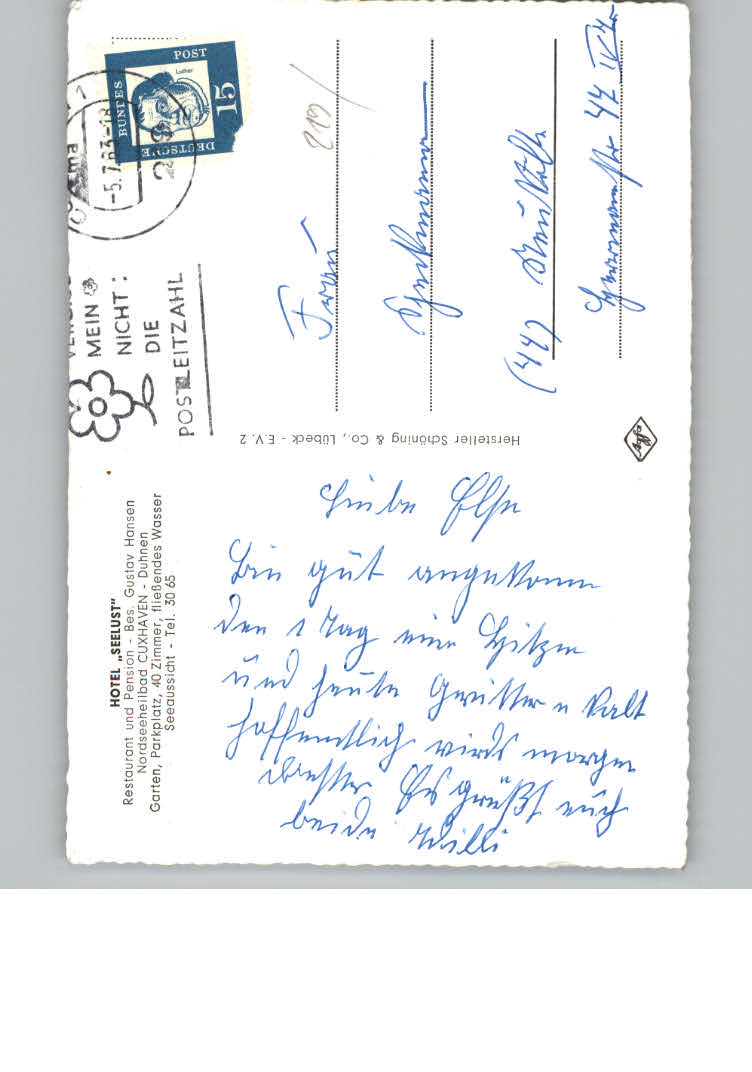 HOTEL „SEELUST"
Restaurant und Pension - Bes. Gustav Hansen
Nordseeheilbad CUXHAVEN - Duhnen
Garten, Parkplatz, 40 Zimmer, fließendes Wasser
Seeaussicht - Tel. 30 65
Liebe Else
Bin gut angekomm
den 1 Tag eine Hitze
und heute Gewitter u kalt
hoffentlich wirds morgen
besser Es grüßt euch
beide Willi
Hersteller Schöning & Co., Lübeck - E.V. 2
MEIN
NICHT:
DIE
POSTLEITZAHL
-5.7.63-18
DEUTSCHE
BUNDES
POST
15
Luther
219/
Frau
(44)
Hermannstr 44 IV